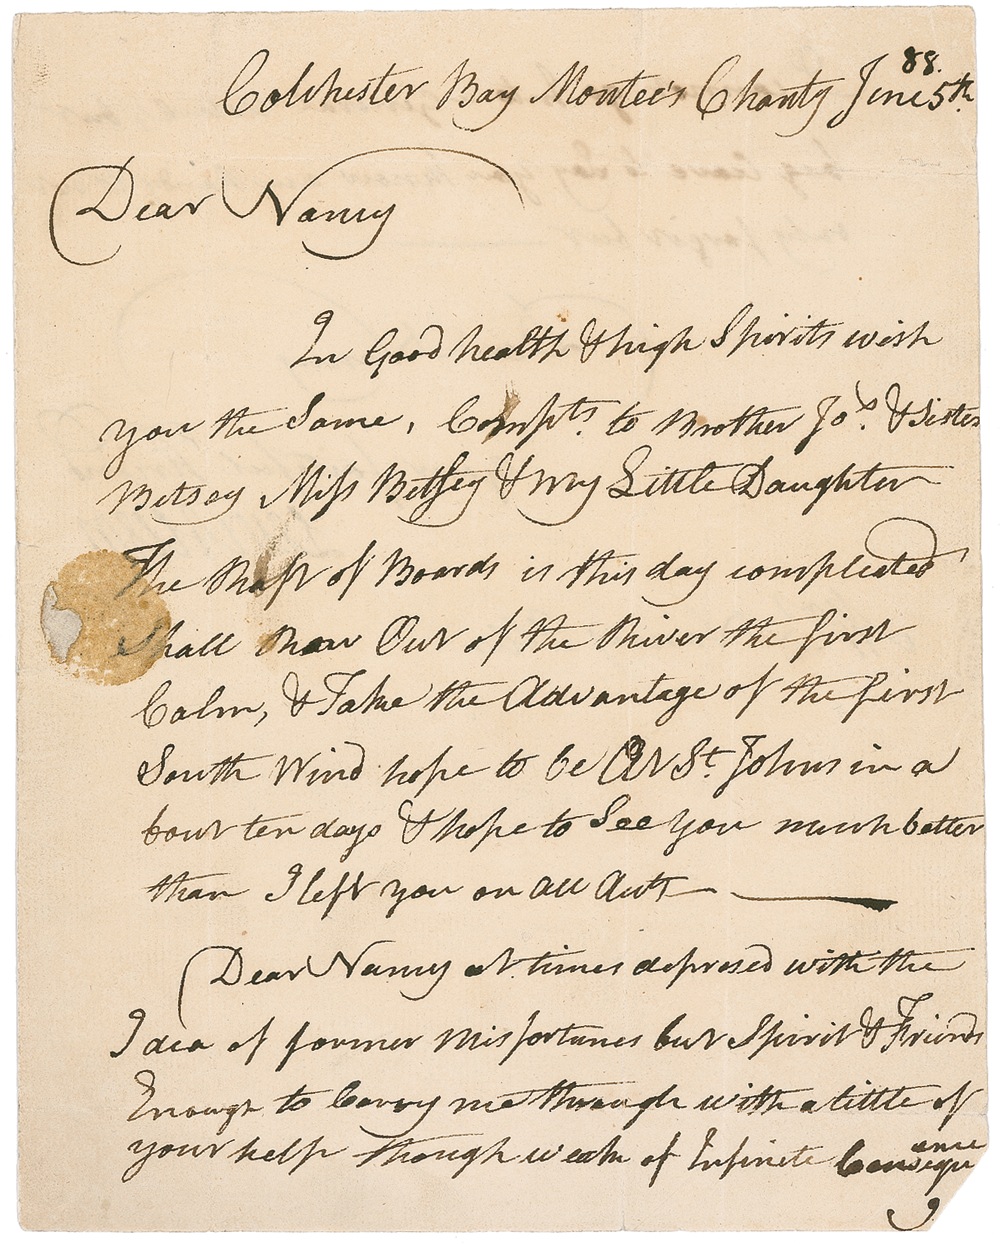 88.
Colchester Bay Montee's Chanty June 5th
Dear Nancy
In Good health & high Spirits wish
you the Same, Compts. to Brother Jos. & Sister
Betsey Miss Betsey & my Little Daughter
The Raft of Boards is this day compleated
Shall Row Out of the River the first
Calm, & Take the Advantage of the first
South Wind hope to be At St. Johns in a
bout ten days & hope to See you much better
than I left you on all Accts
Dear Nancy at times depresed with the
Idea of former Misfortunes but Spirit & Friends
Enough to Carry me through with a little of
your help though weak of Infinite Consequ
ence